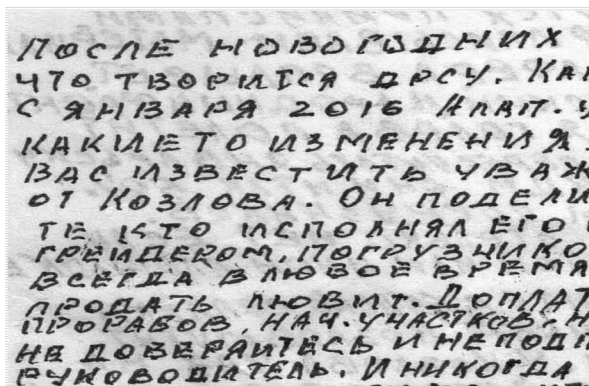 ПОСЛЕ НОВОГОДНИХ
ЧТО ТВОРИТСЯ ДРСУ. КА
С ЯНВАРЯ 2016
КАКИЕ ТО ИЗМЕНЕНИЯ
ВАС ИЗВЕСТИТЬ УВАЖ
ОТ КОЗЛОВА. ОН ПОДЕЛИ
ТЕ КТО ИСПОЛНЯЛ ЕГО
ГРЕЙДЕРОМ, ПОГРУЗЧИКО
ВСЕГДА В ЛЮБОЕ ВРЕМЯ
ПРОДАТЬ ЛЮБИТ. ДОПЛАТ
ПРОРАБОВ, НАЧ. УЧАСТКОВ
НЕ ДОВЕРАЙТЕСЬ И НЕ ПОДП
РУКОВОДИТЕЛЬ. И НИКОГДА